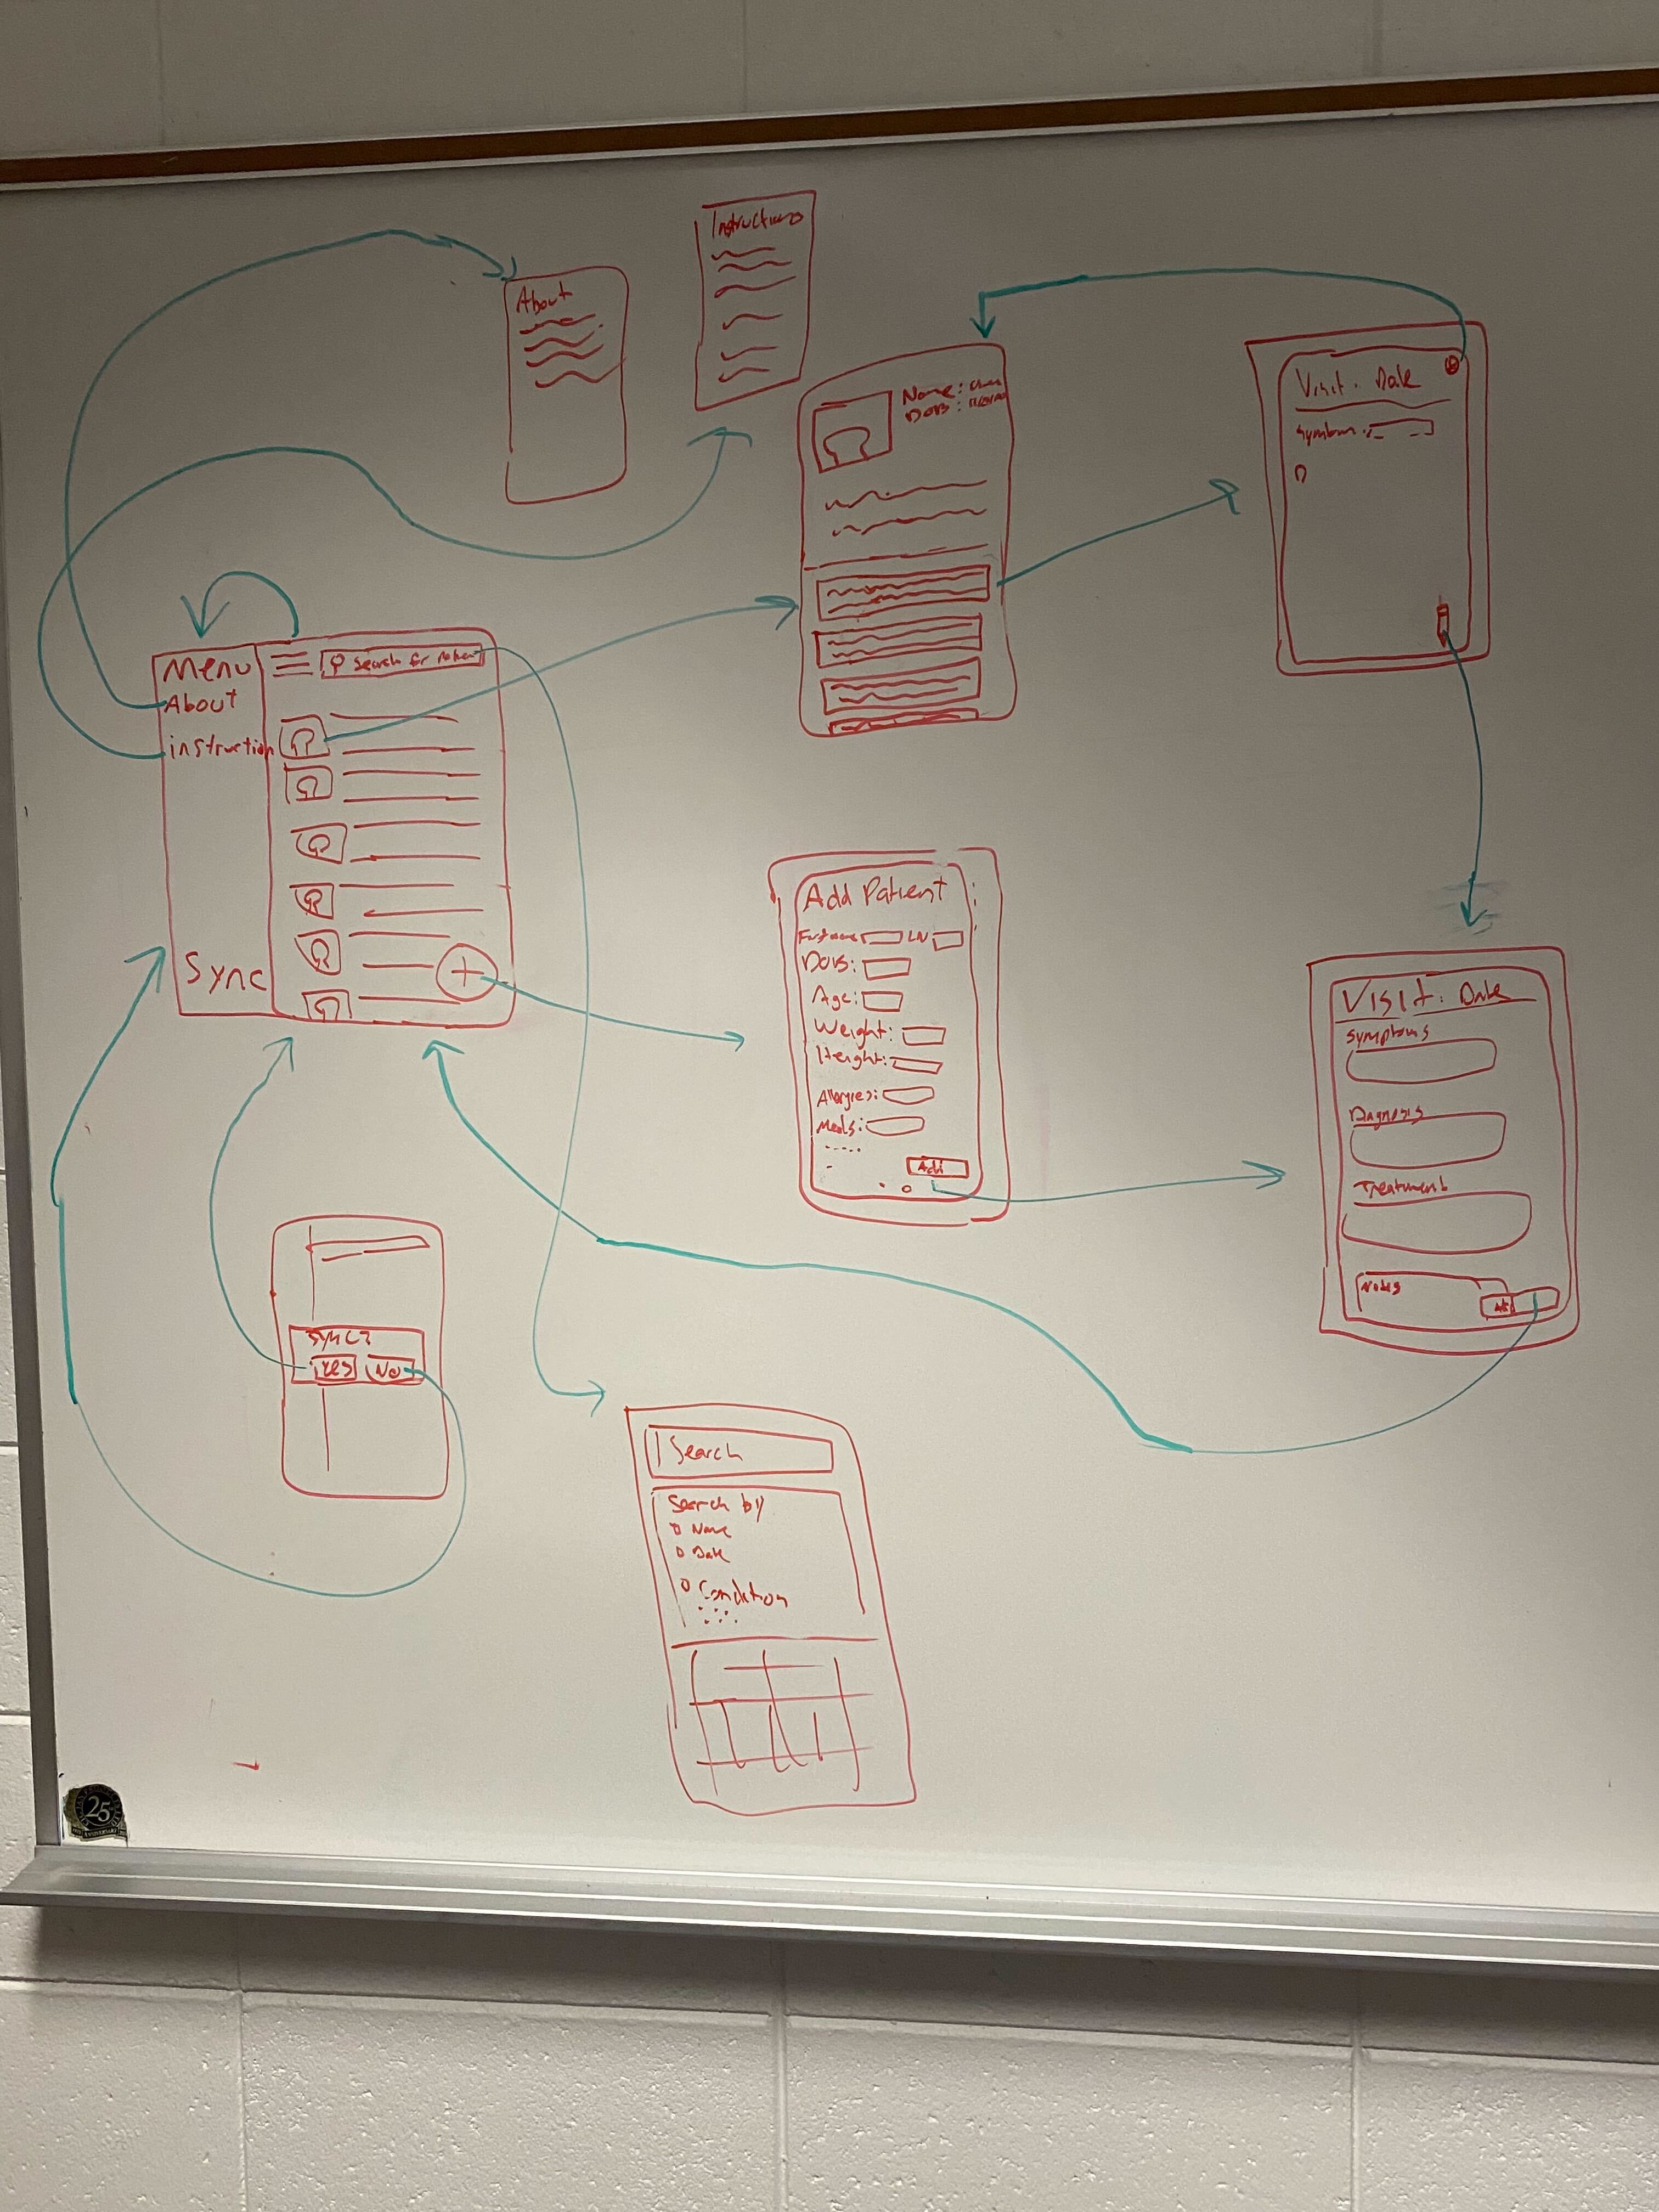 Instructions
About
Name:
DOB:
Visit: Date
Symptom:
Menu
About
instruction
Sync
Search for
Add Patient
First name LN
DOB:
Age:
Weight:
Height:
Allergies:
Meds:
Add
Visit: Date
Symptoms
Diagnosis
Treatment
Notes
Sync?
Yes No
Search
Search by
Name
Date
Condition
25
ANNIVERSARY